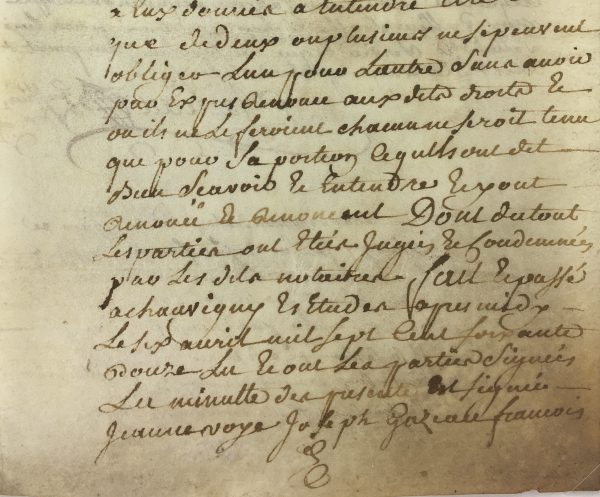 a Eux donnés a Entendre Etre
que de deux ou plusieurs ne se peuvent
obliger Lun pour Lautre Sans avoir
par Expres Renoncé aux dits droits Et
ou ils ne Le feroient chacun ne seroit tenu
que pour Sa portion Ce quils ont dit
Bien Scavoir Et Entendre Et y ont
Renoncé Et Renoncent Dont du tout
Les parties ont Etés Jugés Et Condemnées
par Les dits notaires fait Et passé
a chauvigny Es Etudes apres midy
Le six avril mil sept Cent soixante
Douze Lu Et ont Les parties Signées
La minutte des presente Est signée
Jeanne voye Joseph francois